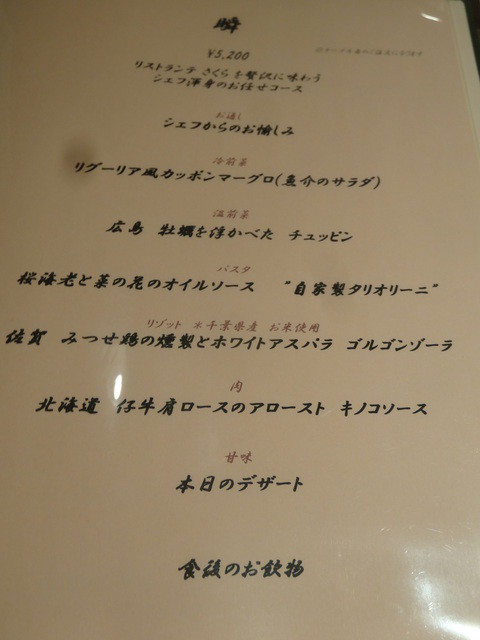 ¥5,200
リストランテ さくら を贅沢に味わう
シェフ渾身のお任せコース
お通し
シェフからのお愉しみ
冷前菜
リグーリア風カッポンマーグロ(魚介のサラダ)
温前菜
広島 牡蠣を浮かべた チュッピン
パスタ
桜海老と菜の花のオイルソース "自家製タリオリーニ"
リゾット ※千葉県産 お米使用
佐賀 みつせ鶏の燻製とホワイトアスパラ ゴルゴンゾーラ
肉
北海道 仔牛肩ロースのアロースト キノコソース
甘味
本日のデザート
食後のお飲物